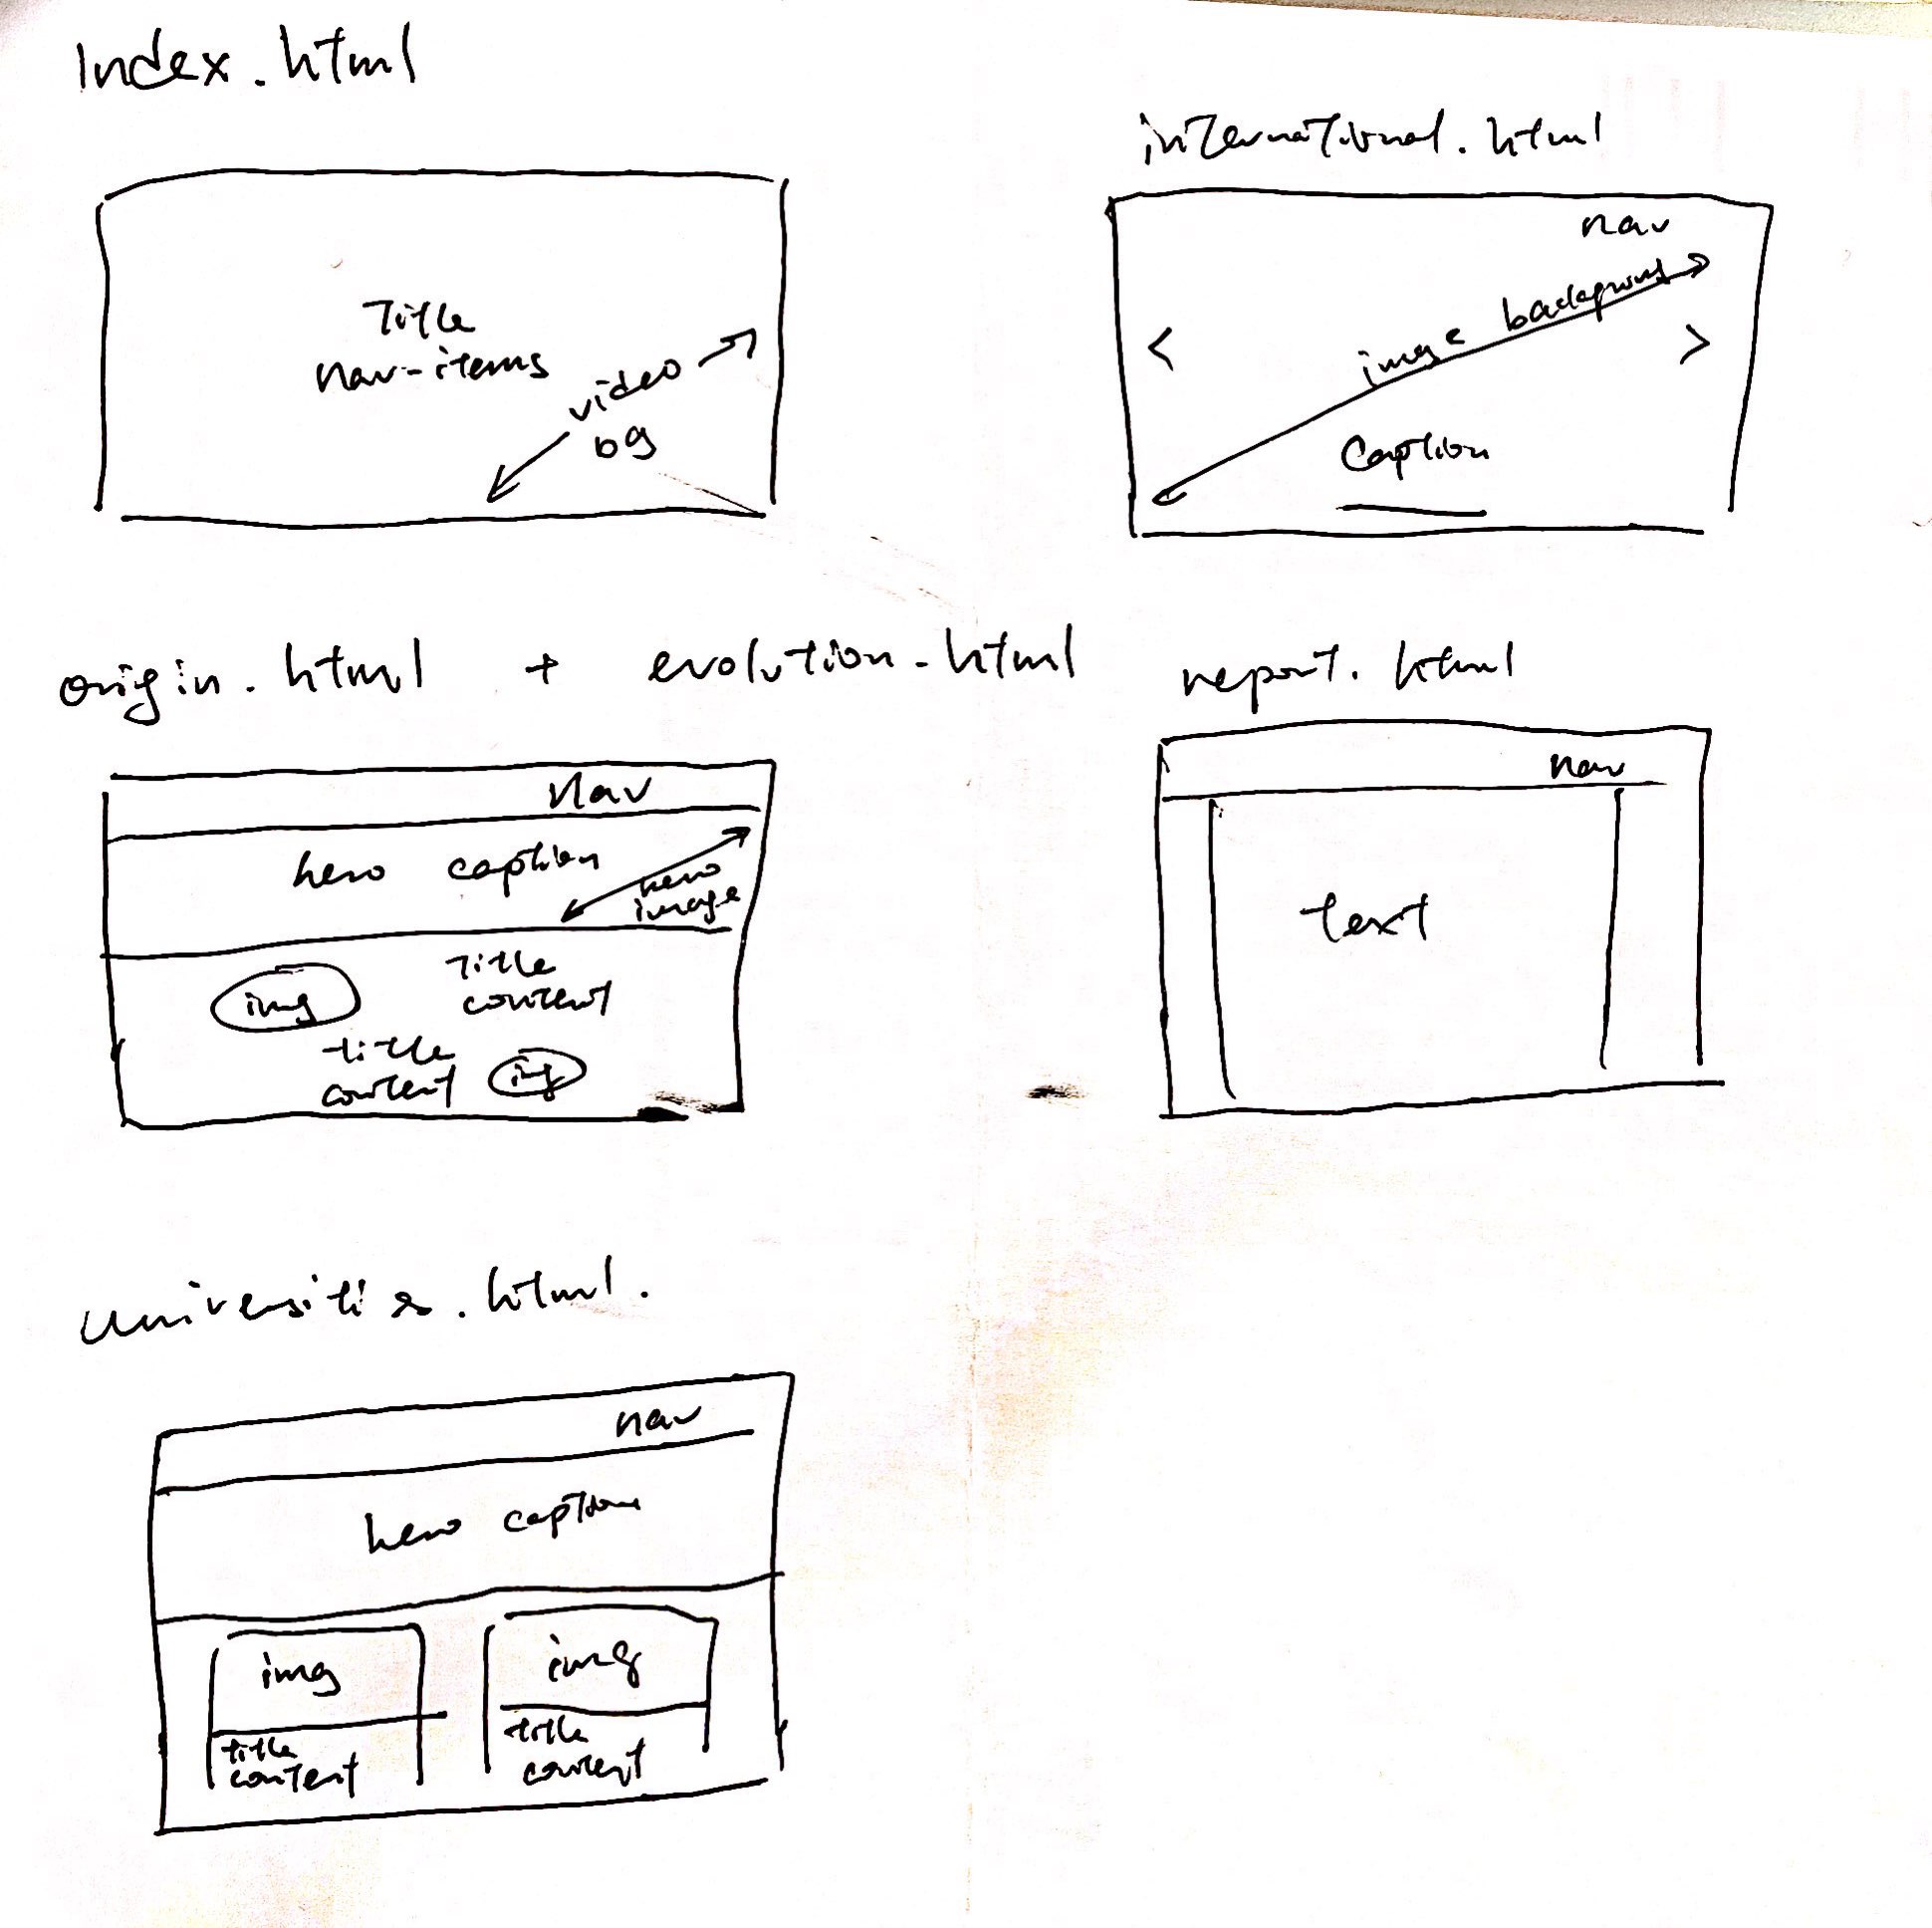 Index.html
Title
nav-items
video
bg
international.html
nav
image background
<
>
Caption
origin.html + evolution.html
Nav
hero caption
hero
image
img
title
content
title
content
img
report.html
nav
text
universities.html.
nav
hero caption
img
title
content
img
title
content